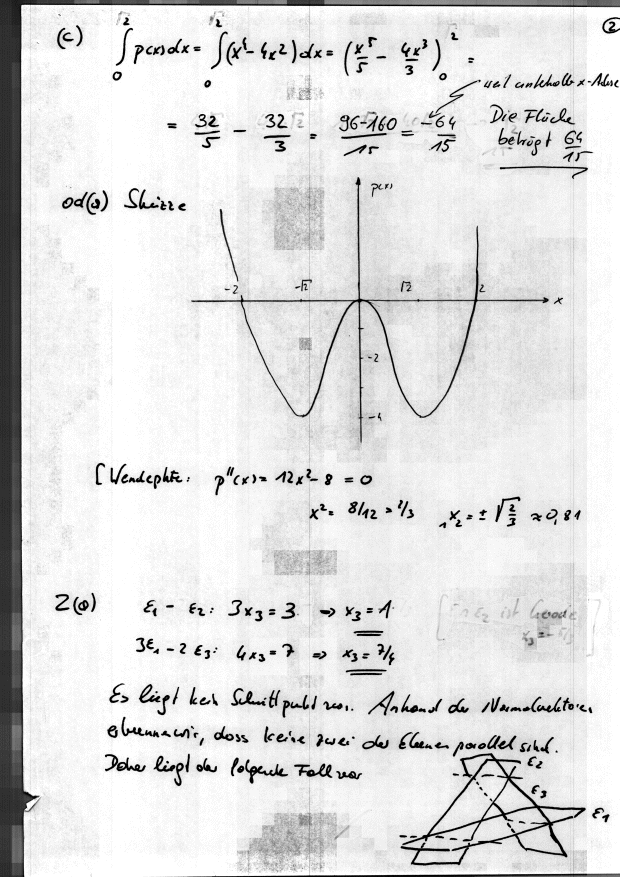 ②
(c) ∫₀² p(x)dx = ∫₀² (x⁴ - 4x²)dx = (x⁵/5 - 4x³/3)₀² =
weil unterhalb x-Achse
= 32/5 - 32/3 = (96-160)/15 = -64/15
Die Fläche
beträgt 64/15
Skizze
p(x)
-2 -√2 √2 2 x
-2
-4
[Wendepkte: p''(x) = 12x² - 8 = 0
x² = 8/12 = 2/3 ₁x₂ = ± √(2/3) ≈ 0,81
2(a) ε₁ - ε₂: 3x₃ = 3 ⇒ x₃ = 1
3ε₁ - 2ε₃: 4x₃ = 7 ⇒ x₃ = 7/4
Es liegt kein Schnittpunkt vor. Anhand der Normalvektoren
erkennen wir, dass keine zwei der Ebenen parallel sind.
Daher liegt der folgende Fall vor
ε₂
ε₃
ε₁